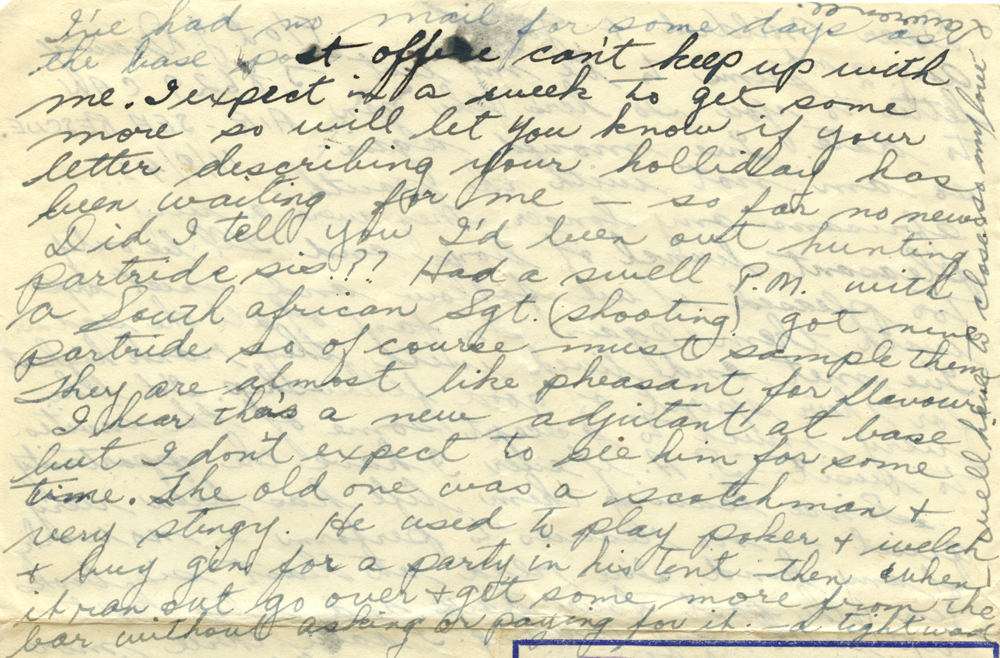 I've had no mail for some days as
the base post office can't keep up with
me. I expect in a week to get some
more so will let you know if your
letter describing your holliday has
been waiting for me — so far no news
Did I tell you I'd been out hunting
partride sis?? Had a swell P.M. with
a South african Sgt. (shooting) got nine
partride so of course must sample them
They are almost like pheasant for flavour
I hear tha's a new adjutant at base
but I don't expect to see him for some
time. The old one was a scotchman +
very stingy. He used to play poker + welch
+ buy gin for a party in his tent then when
it ran out go over + get some more from the
bar without asking or paying for it. — a tightwad
— well have to close so my love
Lawrence